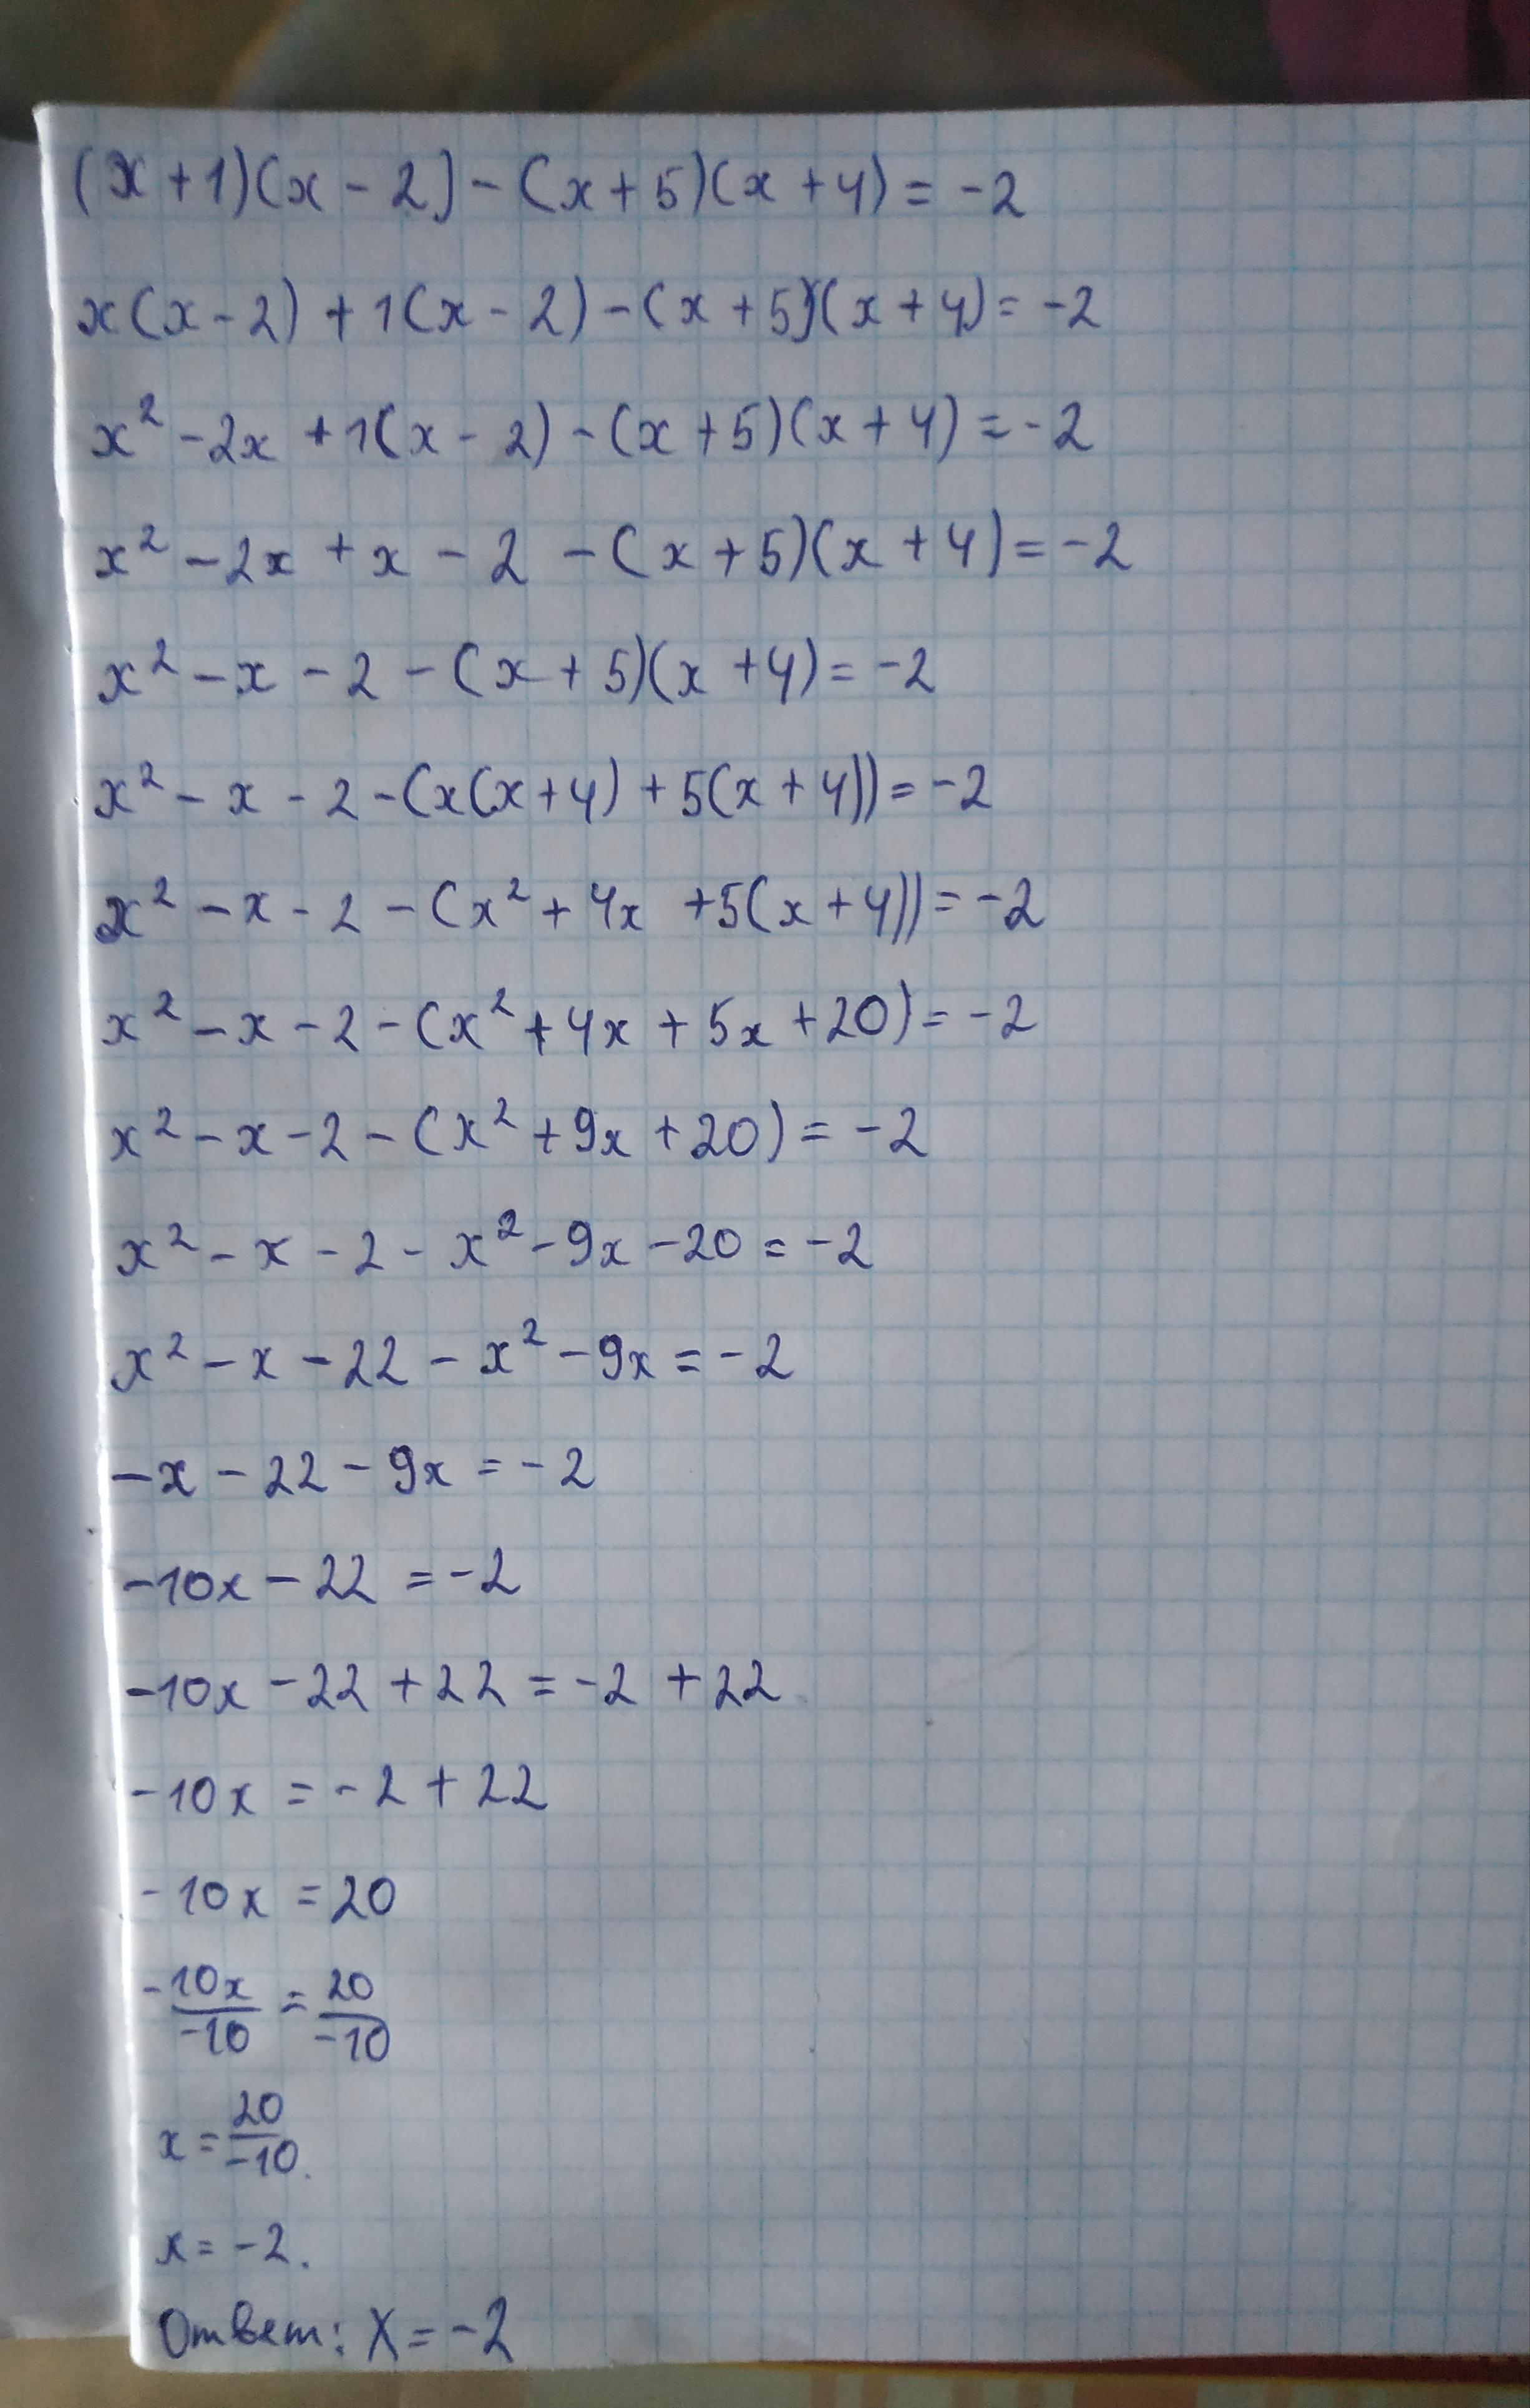 (x+1)(x-2)-(x+5)(x+4)=-2
x(x-2)+1(x-2)-(x+5)(x+4)=-2
x²-2x+1(x-2)-(x+5)(x+4)=-2
x²-2x+x-2-(x+5)(x+4)=-2
x²-x-2-(x+5)(x+4)=-2
x²-x-2-(x(x+4)+5(x+4))=-2
x²-x-2-(x²+4x+5(x+4))=-2
x²-x-2-(x²+4x+5x+20)=-2
x²-x-2-(x²+9x+20)=-2
x²-x-2-x²-9x-20=-2
x²-x-22-x²-9x=-2
-x-22-9x=-2
-10x-22=-2
-10x-22+22=-2+22
-10x=-2+22
-10x=20
-10x/-10=20/-10
x=20/-10.
x=-2.
Ответ: X=-2